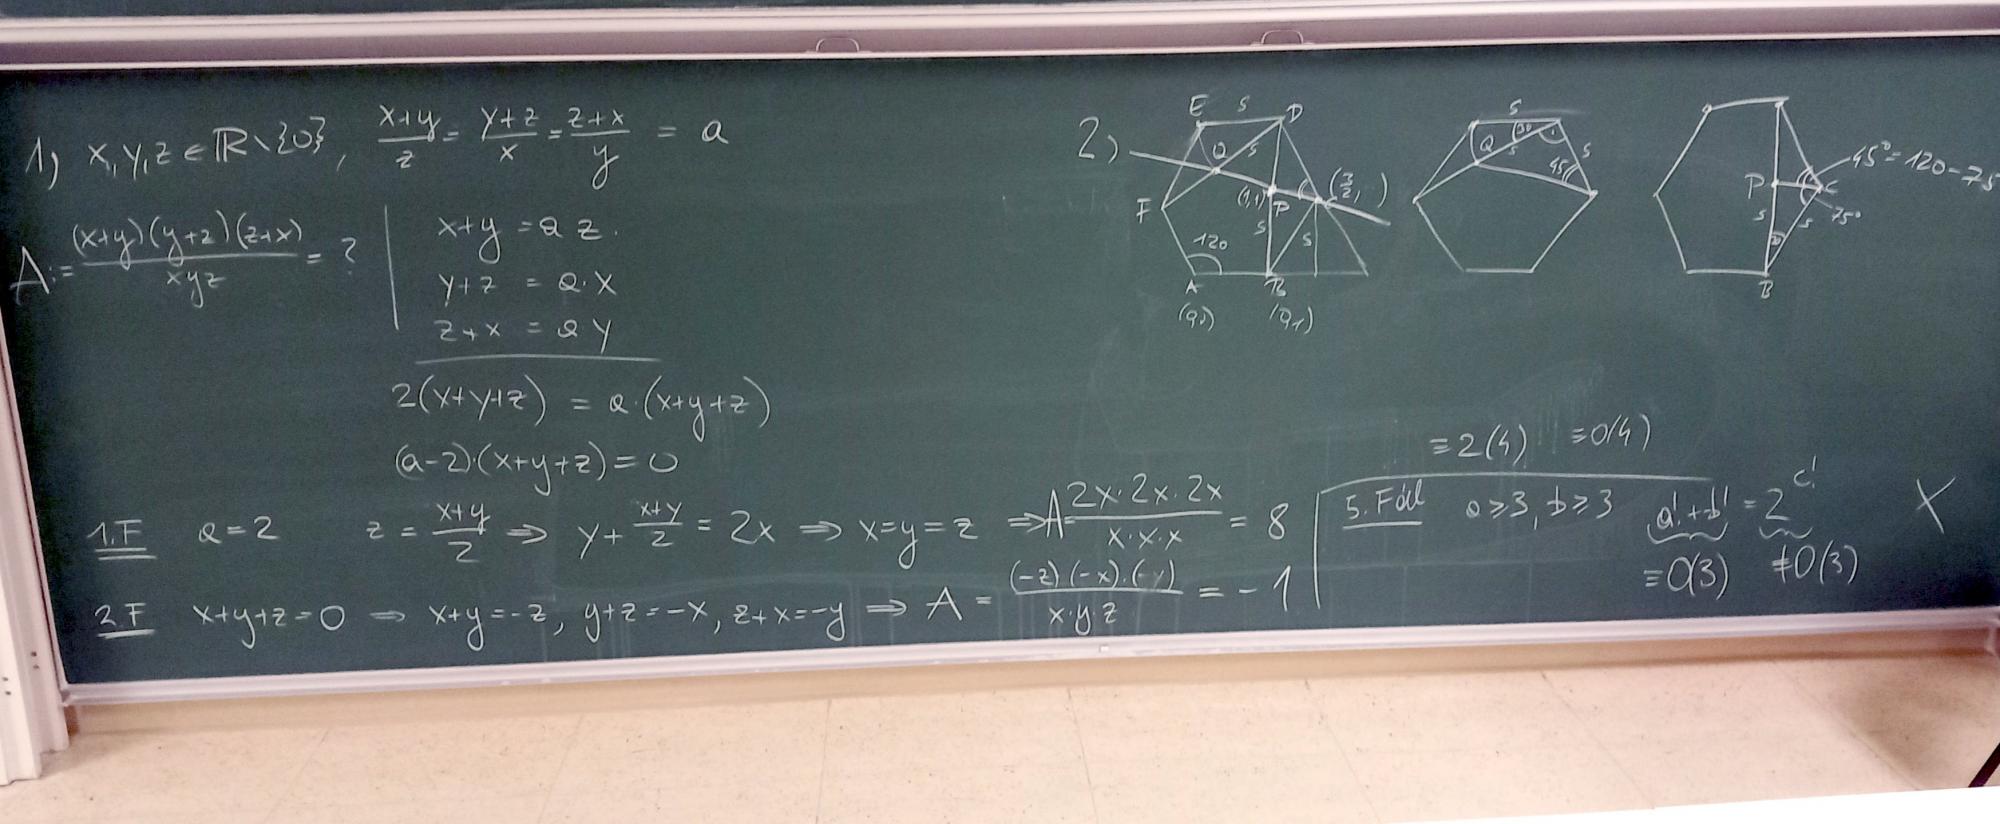 1) x, y, z ∈ ℝ∖{0}, (x+y)/z = (y+z)/x = (z+x)/y = a
A := (x+y)(y+z)(z+x)/xyz = ?
x+y = a z.
y+z = a·x
z+x = a y
2(x+y+z) = a·(x+y+z)
(a-2)·(x+y+z) = 0
1.F a=2 z = (x+y)/2 ⇒ y + (x+y)/2 = 2x ⇒ x=y=z ⇒ A = 2x·2x·2x/x·x·x = 8
2.F x+y+z=0 ⇒ x+y=-z, y+z=-x, z+x=-y ⇒ A = (-z)(-x)·(-y)/x·y·z = -1
2)
E s D
Q s
F (1,1) P (3/2, )
120 s s
A B
(0,1)
s
Q 30 s s
45
P C 45° = 120 - 75
s s 75°
B
≡2(4) ≡0(4)
5. Fall a≥3, b≥3 a!+b! = 2^c!
≡0(3) ≢0(3)
X